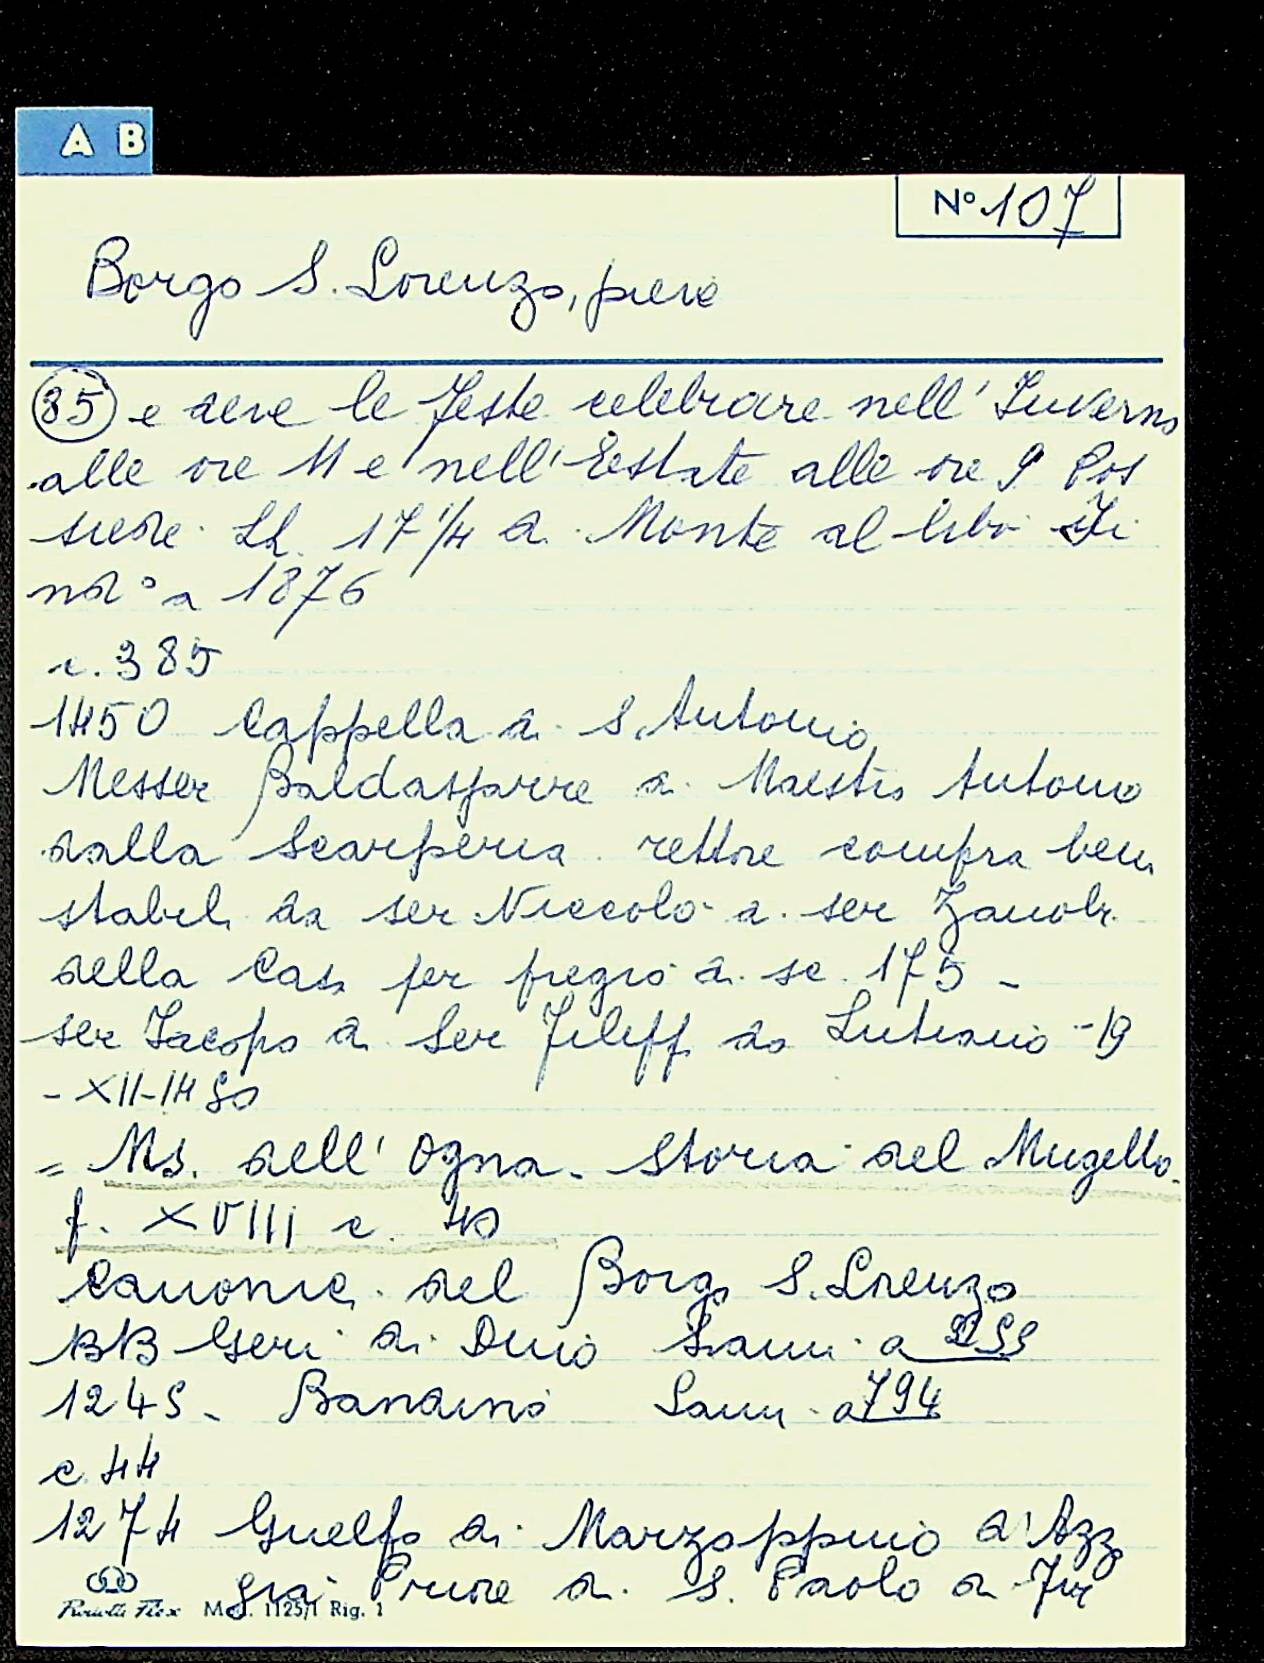 A B
N° 107
Borgo S. Lorenzo, pieve
85 e deve le feste celebrare nell' Inverno
alle ore 11 e nell' Estate alle ore 9 Pos
siede Lh. 17 1/4 di Monte al libo
a 1876
c. 385
1450 Cappella di S. Antonio
Messer Baldassarre di Maestro Antonio
dalla Scarperia rettore compra beni
stabili da ser Niccolo di ser Zanobi
della Casa per pregio di sc. 175 -
ser Iacopo di Ser Filipp. da Lutiano - 19
- XII - 14
= Ms. dell' Ogna. Storia del Mugello.
f. XVIII c. 40
Canonici del Borgo S. Lorenzo
Geri di Duio a
1245 - Bandino a 794
c. 44
1274 Guelfo di Marzoppino d' Azz
già Priore di S. Paolo di Fir
Mod. 1125/1 Rig. 1